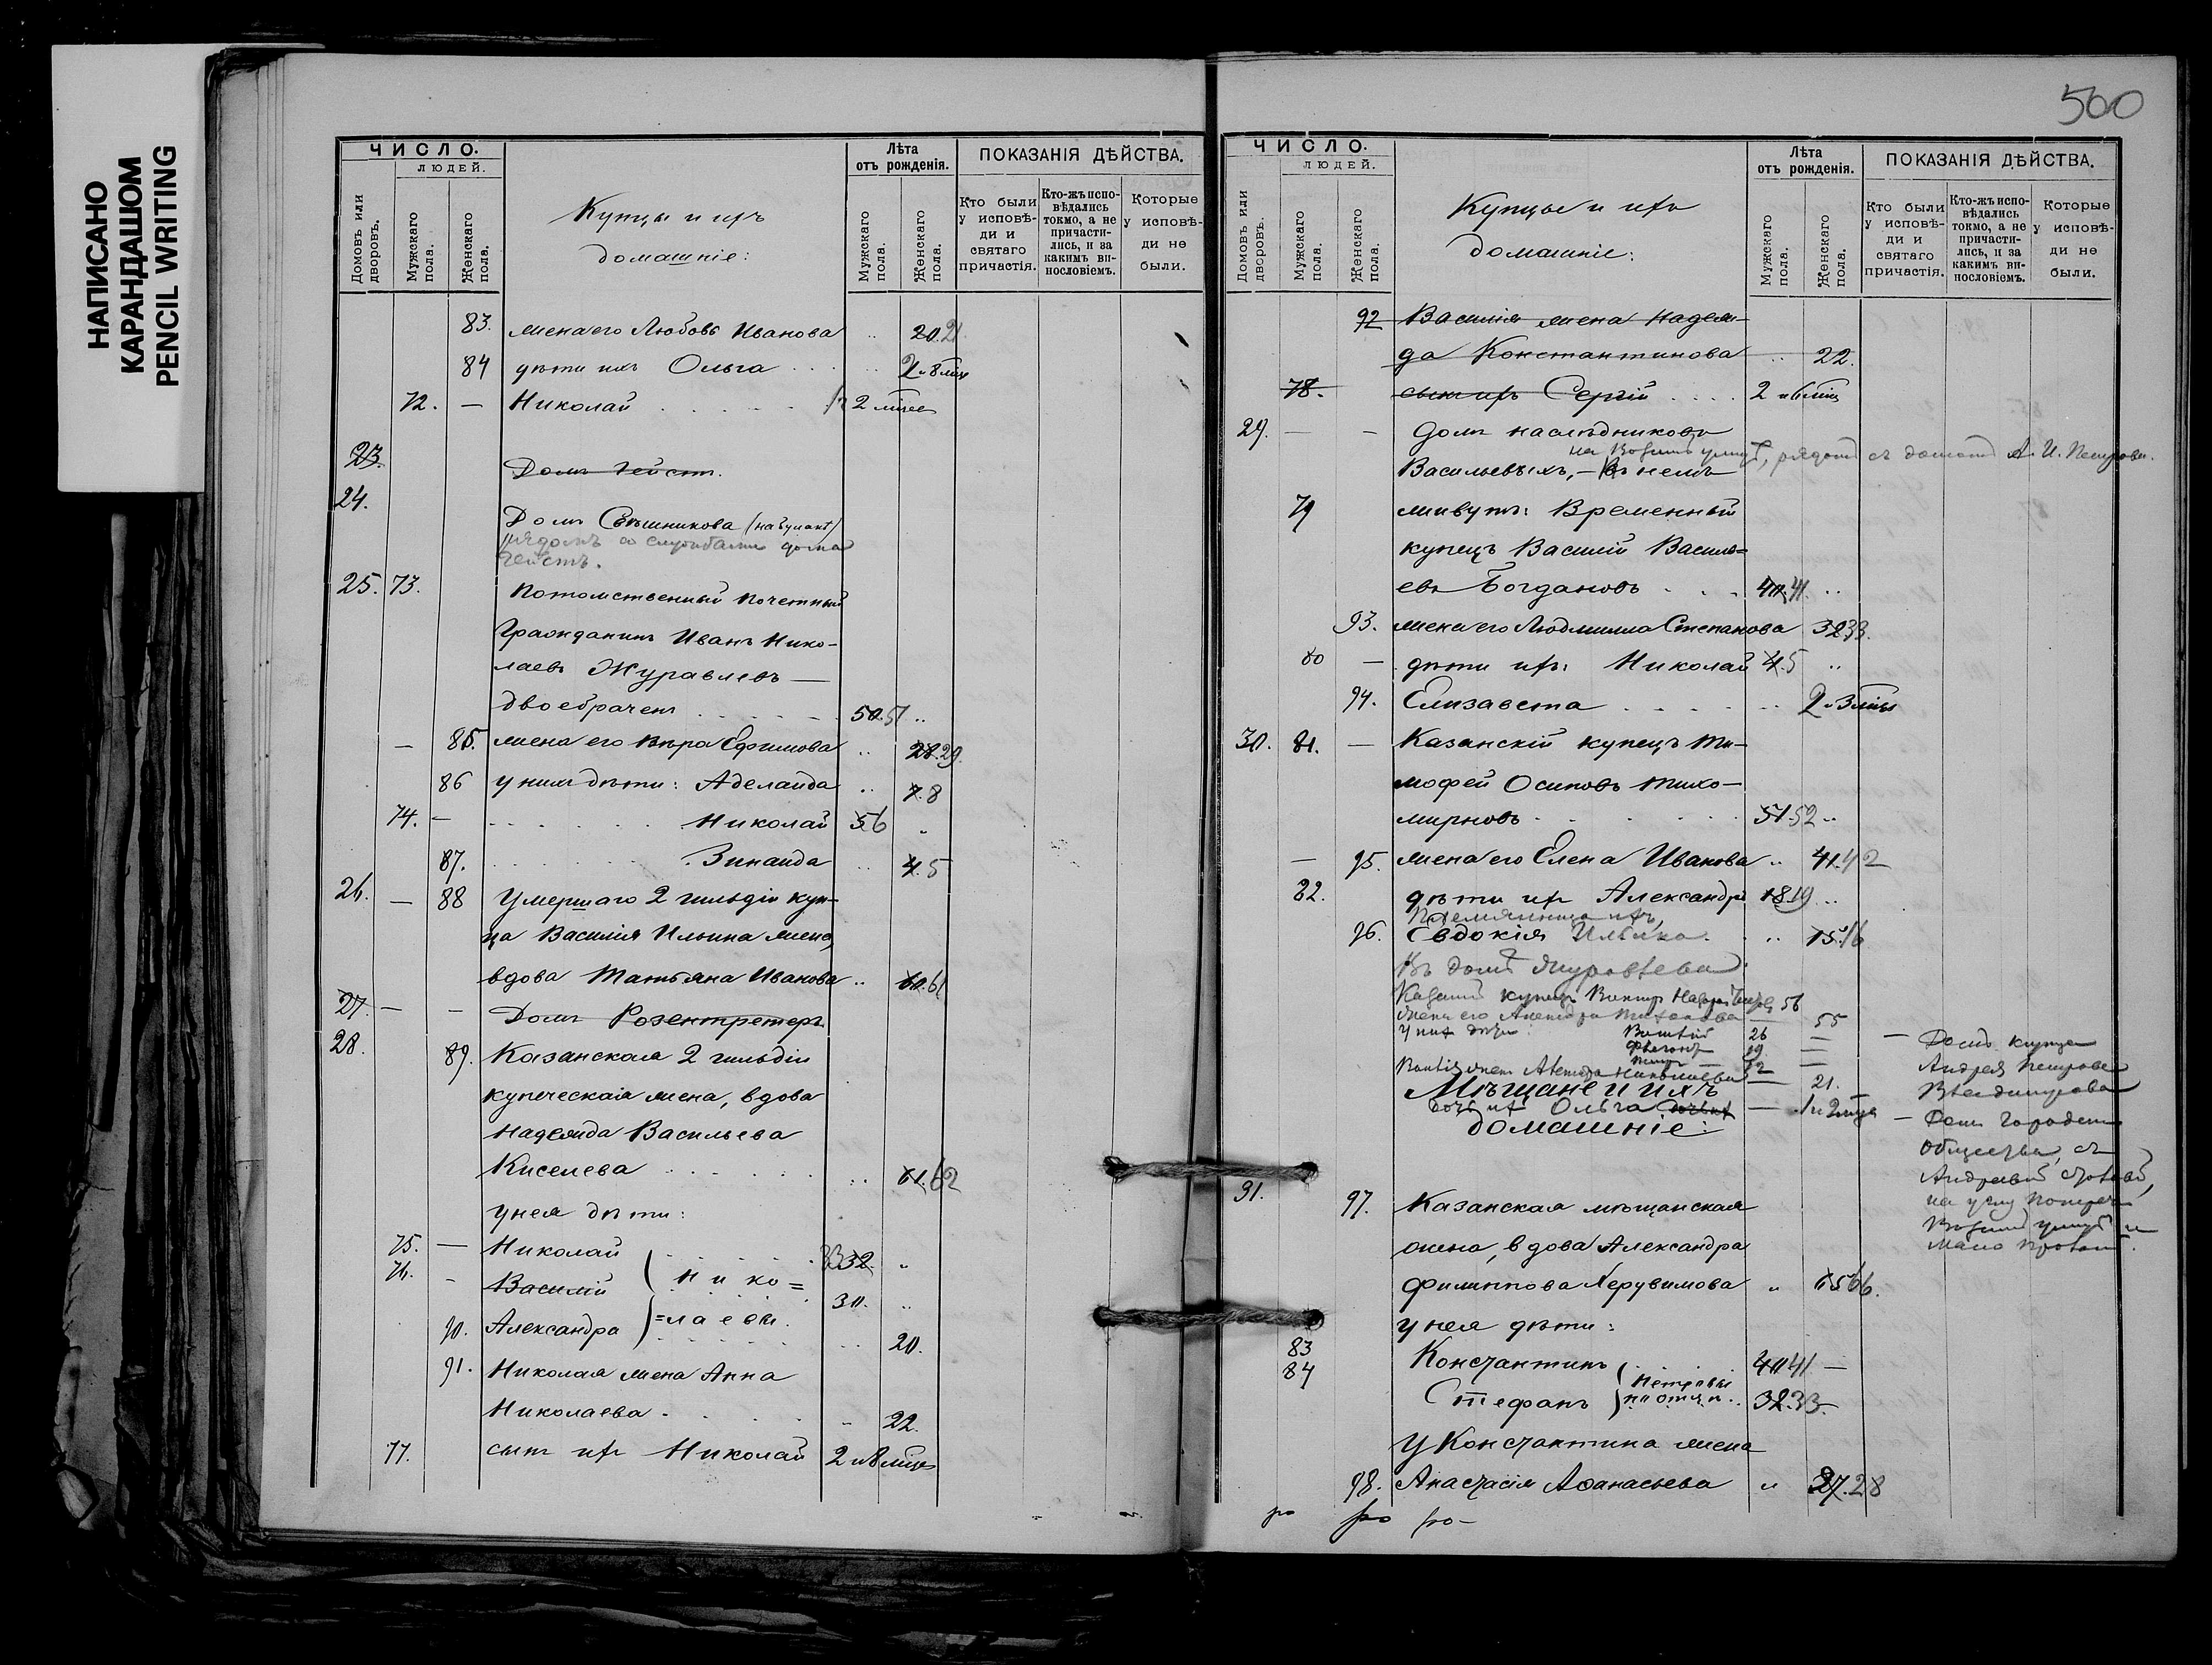 НАПИСАНО
КАРАНДАШОМ
PENCIL WRITING
ЧИСЛО.
ЛЮДЕЙ.
Домовъ или дворовъ.
Мужскаго пола.
Женскаго пола.
Купцы и ихъ
домашніе:
Лѣта
отъ рожденія.
Мужскаго пола.
Женскаго пола.
ПОКАЗАНІЯ ДѢЙСТВА.
Кто были у исповѣди и святаго причастія.
Кто-жъ исповѣдались токмо, а не причастились, и за какимъ винословіемъ.
Которые у исповѣди не были.
83. жена его Любовь Иванова .. 20.21
84 дѣти ихъ Ольга .. 2 и 8 мцы
72. — Николай 2 мцес
23. Домъ Гейст.
24.
Домъ Свѣшникова (на булакѣ)
рядомъ со службами дома
Гейстъ.
25. 73. Потомственный почетный
гражданинъ Иванъ Нико-
лаевъ Журавлевъ —
двоебраченъ 50.51 ..
— 85. жена его Вѣра Ефимова .. 28.29.
86 у нихъ дѣти: Аделаида .. 7.8
74. — Николай 5 6 ..
87. Зинаида .. 4.5
26. — 88 Умершаго 2 гильдіи куп-
ца Василія Ильина жена,
вдова Татьяна Иванова .. 60.61
27. — - Домъ Розентретеръ
28. 89. Казанская 2 гильдіи
купеческая жена, вдова
Надежда Васильева
Киселева .. 61.62
у нея дѣти:
75. — Николай 33 32. ..
76. - Василій ( Нико= 30. ..
90. Александра )=лаевы. .. 20.
91. Николая жена Анна
Николаева .. 22.
77. сынъ ихъ Николай 2 и 8 мцевъ
500
ЧИСЛО.
ЛЮДЕЙ.
Домовъ или дворовъ.
Мужскаго пола.
Женскаго пола.
Купцы и ихъ
домашніе:
Лѣта
отъ рожденія.
Мужскаго пола.
Женскаго пола.
ПОКАЗАНІЯ ДѢЙСТВА.
Кто были у исповѣди и святаго причастія.
Кто-жъ исповѣдались токмо, а не причастились, и за какимъ винословіемъ.
Которые у исповѣди не были.
92 Василія жена Надеж-
да Константинова .. 22.
78. сынъ ихъ Сергій 2 и 6 мцъ
29. — - Домъ наслѣдниковъ
на Вознес улицѣ, рядомъ съ домомъ А. И. Петрова.
Васильевыхъ, — въ немъ
79 живутъ: Временный
купецъ Василій Василь=
евъ Богдановъ 40.41 ..
93. жена его Людмила Степанова 32 33.
80 — дѣти ихъ: Николай 4.5 ..
94. Елизавета .. 2 и 3 мцы
30. 81. — Казанскій купецъ Ти-
мофей Осиповъ Тихо-
мирновъ 51.52 ..
— 95. жена его Елена Иванова .. 41.42
82. дѣти ихъ Александръ 18.19 ..
Племянница ихъ,
96. Евдокія Ильина. .. 15.16
Въ домѣ Журавлева
купецъ Викторъ 56
жена его 55
у них дѣти: 26
19
12
21.
Мѣщане и ихъ
дочь их Ольга — 1 и 2 мца
домашніе:
— Домъ купца
Андрея Петрова
Владимірова
— Домъ Городского
Общества, съ
Андреевой
на углу Попереч
Вознес улицы и
Мало
31. 97. Казанская мѣщанская
жена, вдова Александра
Филиппова Херувимова .. 65 66.
у нея дѣти:
83 Константинъ ( Петровы 40 41 —
84 Стефанъ ) по отцу. 32.33 -
у Константина жена
98. Анастасія Афанасьева .. 27.28